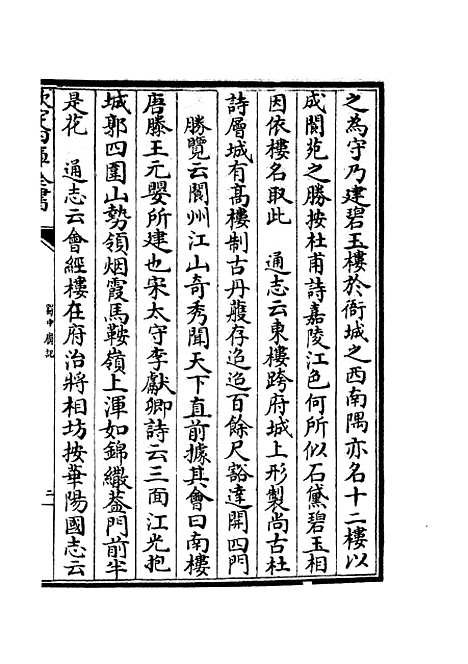 之為守乃建碧玉樓於衙城之西南隅亦名十二樓以
成閬苑之勝按杜甫詩嘉陵江色何所似石黛碧玉相
因依樓名取此　通志云東樓跨府城上形製尚古杜
詩層城有高樓制古丹雘存迢迢百餘尺豁達開四門
勝覽云閬州江山奇秀聞天下直前據其會曰南樓
唐滕王元嬰所建也宋太守李獻卿詩云三面江光抱
城郭四圍山勢領烟霞馬鞍嶺上渾如錦繖葢門前半
是花　通志云會經樓在府治將相坊按華陽國志云
欽定四庫全書
蜀中廣記
二